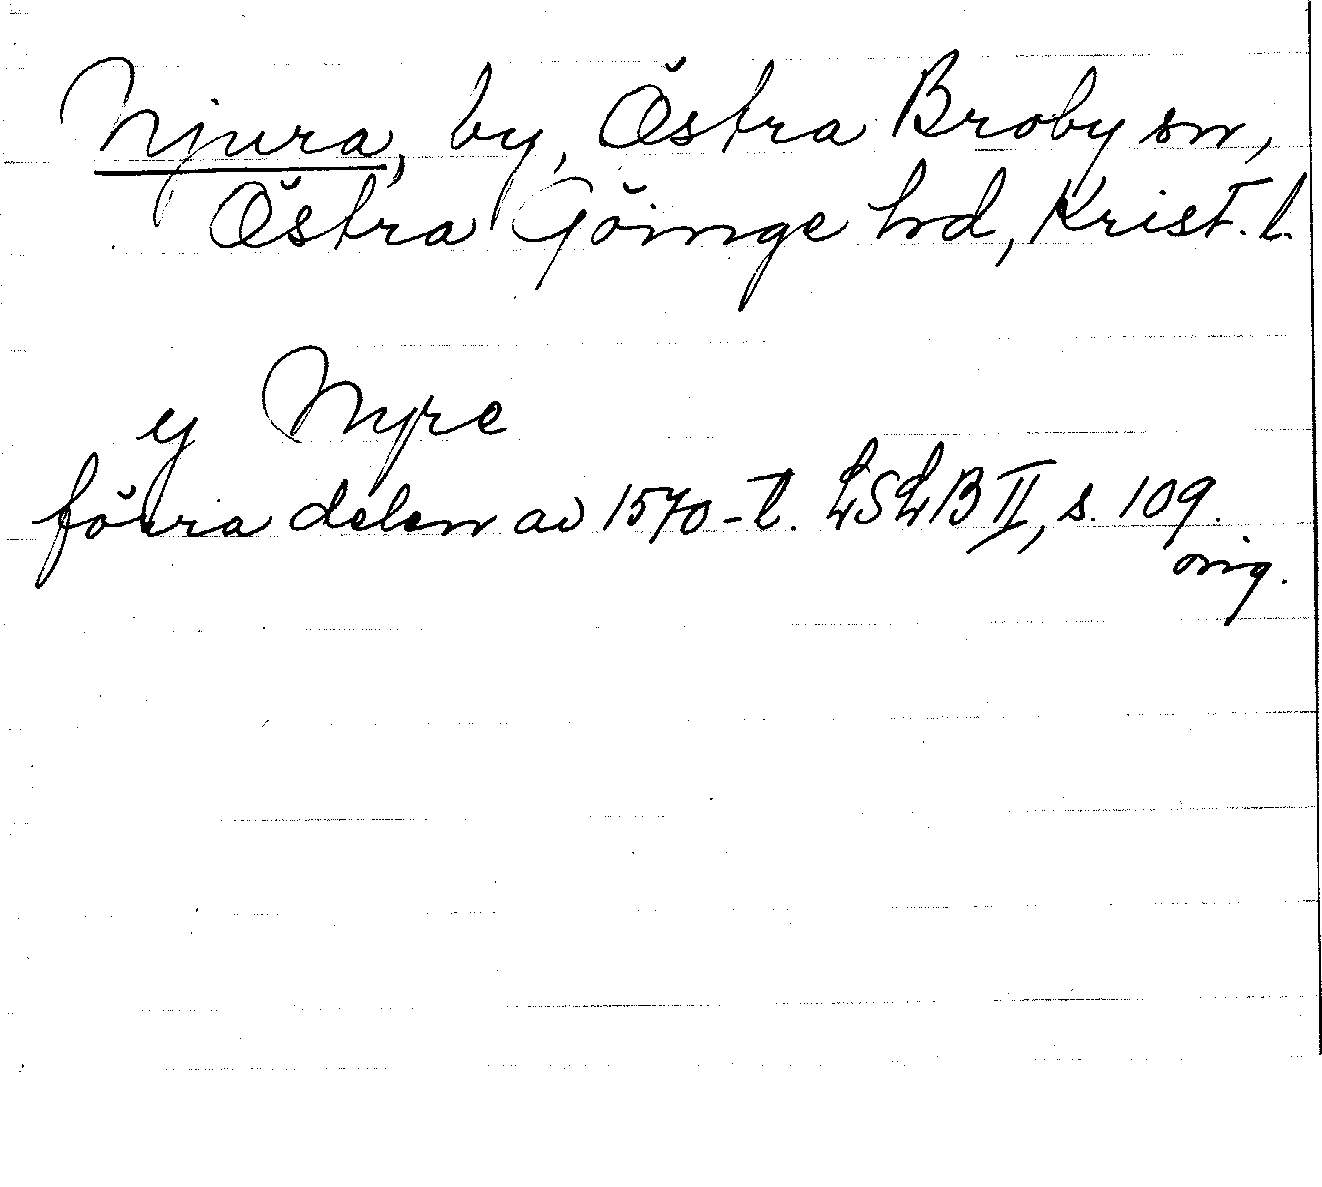 Njura, by, Östra Broby sn,
Östra Göinge hd, Krist. l.
y Nyre
förra delen av 1570-t. LSLB II, s. 109.
orig.